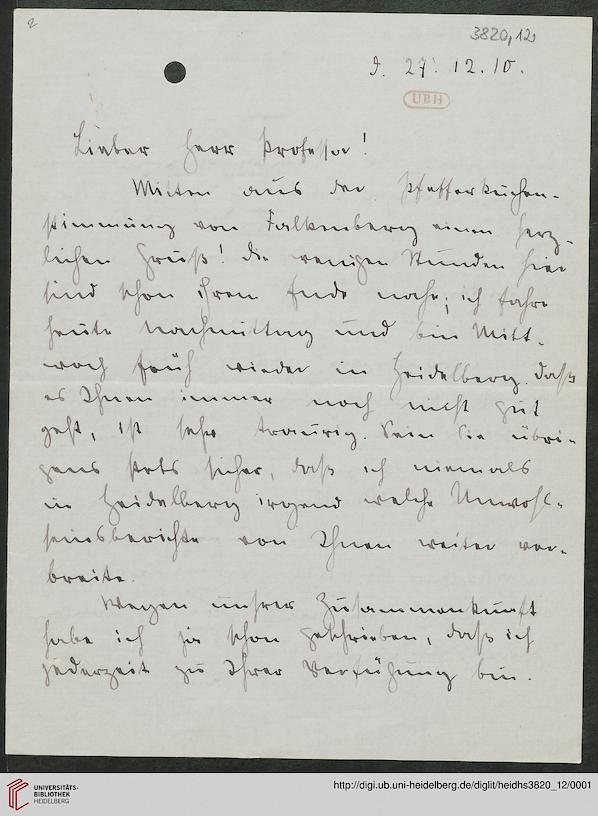 2
3820,12
D. 27. 12. 10.
UBH
Lieber Herr Professor!
Mitten aus der Pfefferkuchen-
stimmung von Falkenberg einen herz-
lichen Gruß! Die wenigen Stunden hier
sind schon ihrem Ende nahe; ich fahre
heute Nachmittag und bin Mitt-
woch früh wieder in Heidelberg. Daß
es Ihnen immer noch nicht gut
geht, ist sehr traurig. Seien Sie übri-
gens stets sicher, daß ich niemals
in Heidelberg irgend welche Unwohl-
seinsberichte von Ihnen weiter ver-
breite.
Wegen unsrer Zusammenkunft
habe ich ja schon geschrieben, daß ich
jederzeit zu Ihrer Verfügung bin.
UNIVERSITÄTS-
BIBLIOTHEK
HEIDELBERG
http://digi.ub.uni-heidelberg.de/diglit/heidhs3820_12/0001